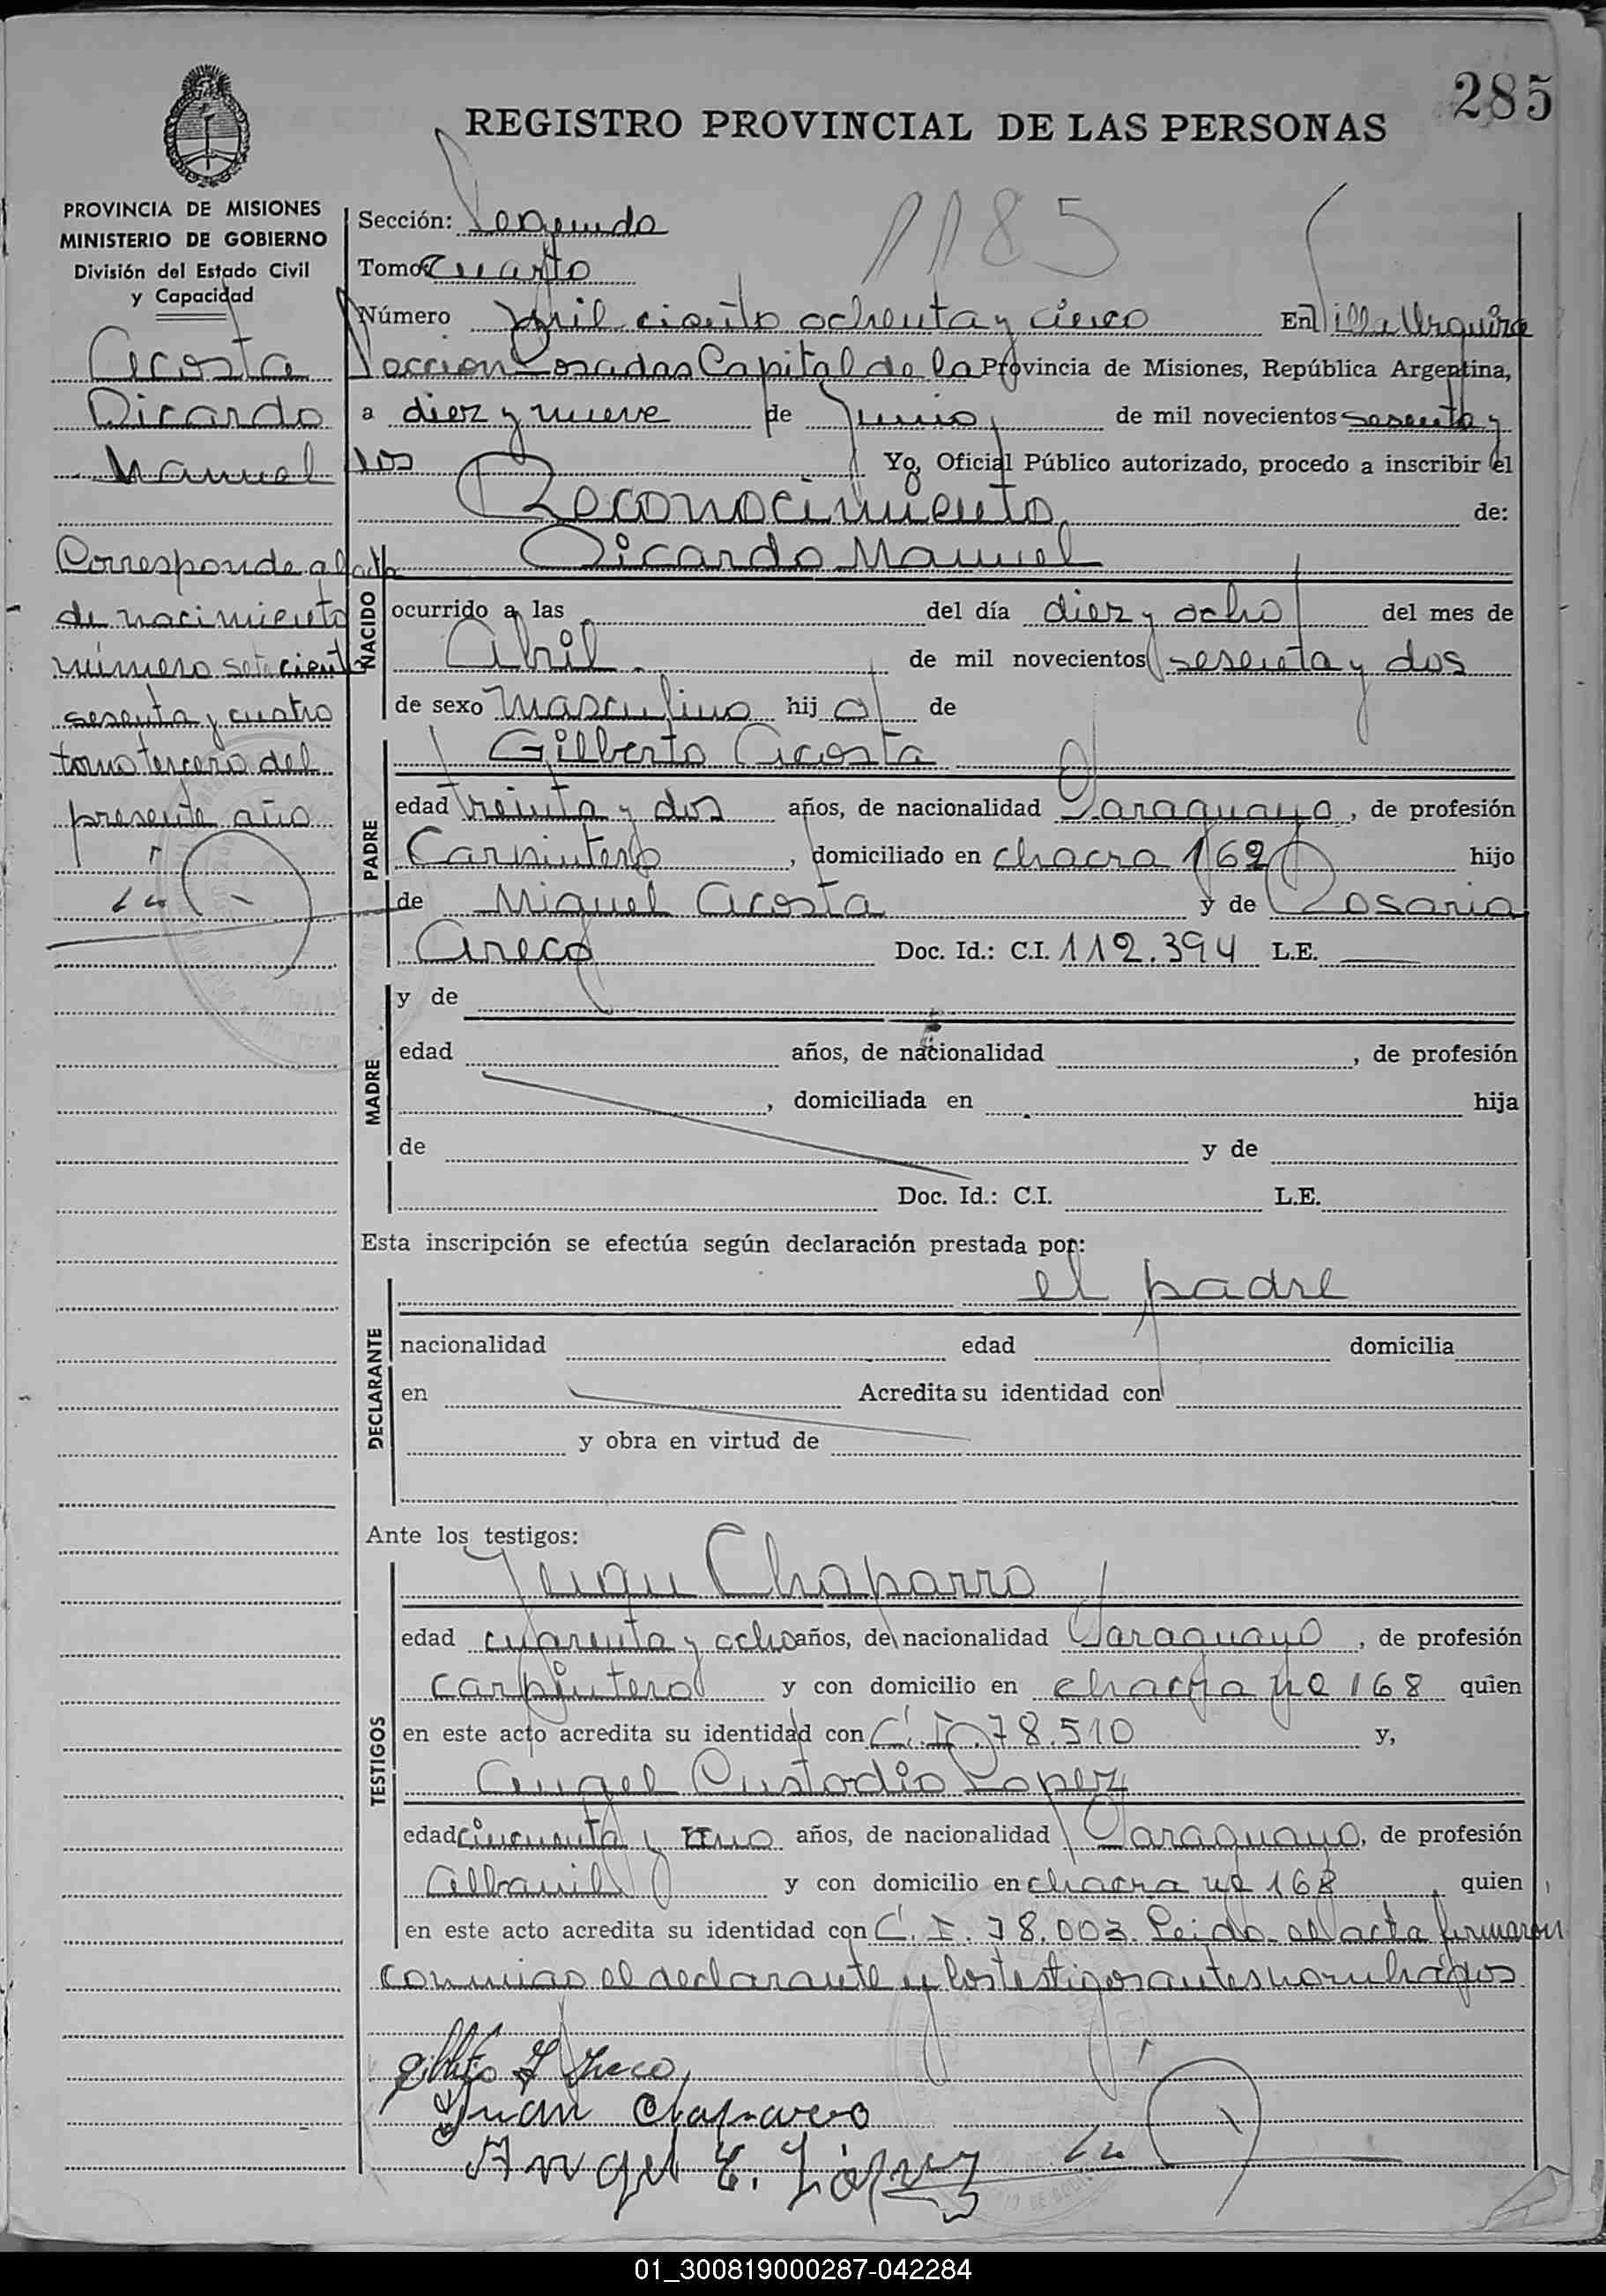 285
REGISTRO PROVINCIAL DE LAS PERSONAS
PROVINCIA DE MISIONES
MINISTERIO DE GOBIERNO
División del Estado Civil
y Capacidad
Acosta
Ricardo
Manuel
Corresponde al acta
de nacimiento
número setecientos
sesenta y cuatro
tomo tercero del
presente año
1185
Sección: Segunda
Tomo: Cuarto
Número mil ciento ochenta y cinco En Villa Urquiza
Sección Posadas Capital de la Provincia de Misiones, República Argentina,
a diez y nueve de Junio de mil novecientos sesenta y
dos Yo, Oficial Público autorizado, procedo a inscribir el
Reconocimiento de:
Ricardo Manuel
NACIDO
ocurrido a las del día diez y ocho del mes de
Abril de mil novecientos sesenta y dos
de sexo masculino hijo de
Gilberto Acosta
PADRE
edad treinta y dos años, de nacionalidad Paraguayo, de profesión
Carpintero, domiciliado en chacra 162 hijo
de Miguel Acosta y de Rosaria
Areco Doc. Id.: C.I. 112.394 L.E.
MADRE
y de
edad años, de nacionalidad , de profesión
, domiciliada en hija
de y de
Doc. Id.: C.I. L.E.
Esta inscripción se efectúa según declaración prestada por:
el padre
DECLARANTE
nacionalidad edad domicilia
en Acredita su identidad con
y obra en virtud de
Ante los testigos:
Chaparro
TESTIGOS
edad cuarenta y ocho años, de nacionalidad Paraguayo, de profesión
carpintero y con domicilio en chacra nº 168 quien
en este acto acredita su identidad con C.I. 78.510 y,
Angel Custodio Lopez
edad cincuenta y uno años, de nacionalidad Paraguayo, de profesión
Albanil y con domicilio en chacra nº 168 quien
en este acto acredita su identidad con C.I. 78.003. Leido el acta firmaron
conmigo el declarante y los testigos antes nombrados
Juan Chaparro
Angel C. López
01_300819000287-042284